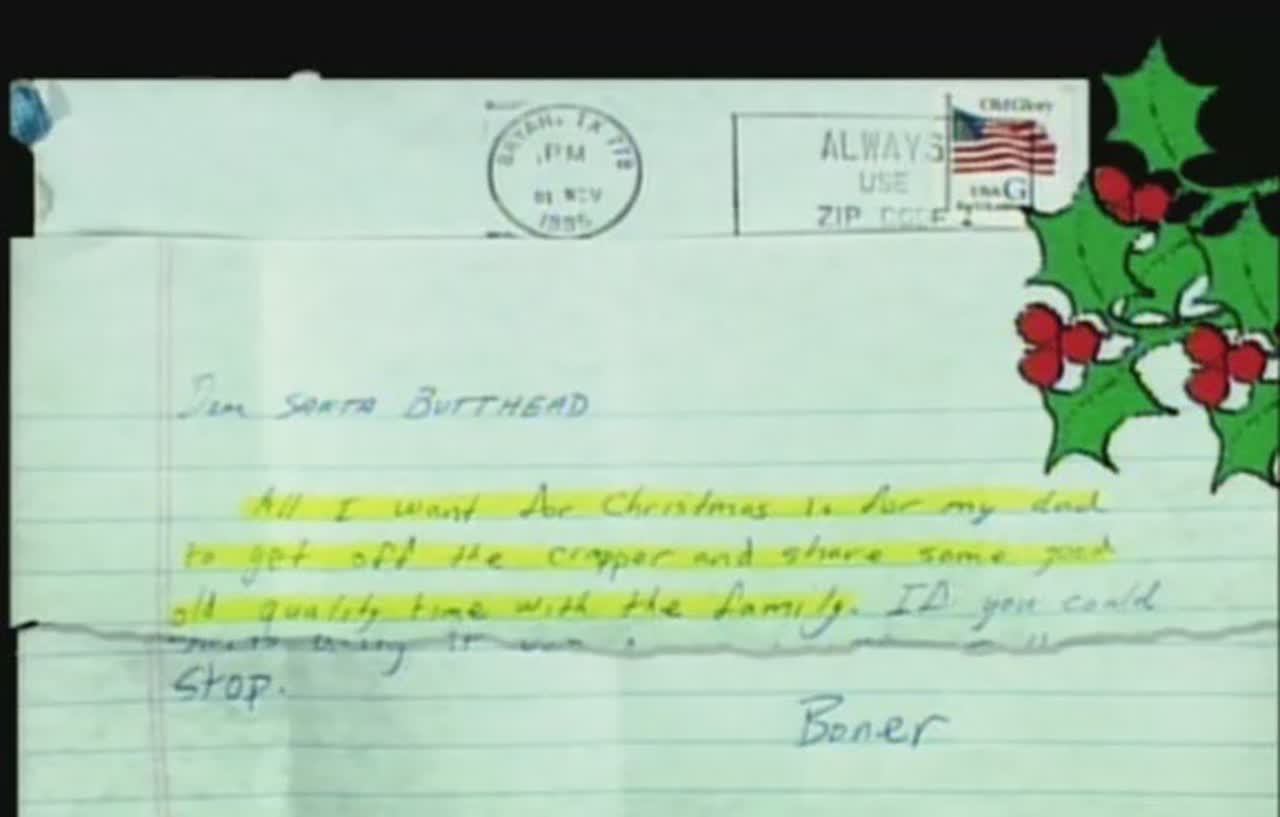 Old Glory
BRYAN, TX 778
PM
01 NOV
1995
ALWAYS
USE
ZIP CODE
USA G
Dear SANTA BUTTHEAD
All I want for Christmas is for my dad
to get off the crapper and share some good
old quality time with the family. If you could
it
Stop.
Boner